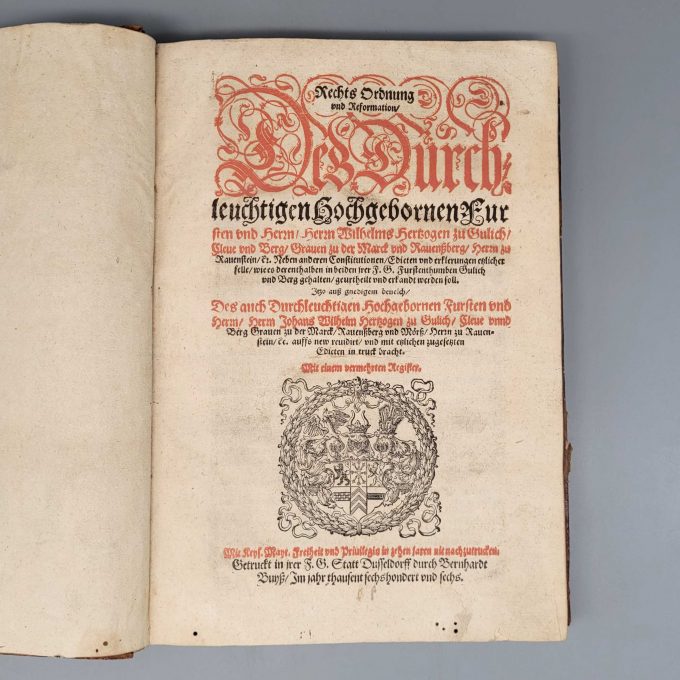 Rechts Ordnung
vnd Reformation/
Des Durch-
leuchtigen Hochgebornen Fur
sten vnd Herrn/ Herrn Wilhelms Hertzogen zu Gulich/
Cleue vnd Berg/ Grauen zu der Marck vnd Rauenßberg/ Herrn zu
Rauenstein/ ꝛc. Neben anderen Constitutionen/ Edicten vnd erklerungen etzlicher
felle/ wie es derenthalben in beiden jrer F. G. Furstenthumben Gulich
vnd Berg gehalten/ geurtheilt vnd erkandt werden soll.
Jtzo auß gnedigem beuelch/
Des auch Durchleuchtigen Hochgebornen Fursten vnd
Herrn/ Herrn Johans Wilhelm Hertzogen zu Gulich/ Cleue vnnd
Berg Grauen zu der Marck/ Rauenßberg vnd Mörß/ Herrn zu Rauen-
stein/ ꝛc. auffs new reuidirt/ vnd mit etzlichen zugesetzten
Edicten in truck bracht.
Mit einem vermehrten Register.
Mit Keys. Mayt. Freiheit vnd Priuilegio in zehen jaren nit nachzutrucken.
Getruckt in jrer F. G. Statt Dusseldorff durch Bernhardt
Buyß/ Im jahr thausent sechshondert vnd sechs.